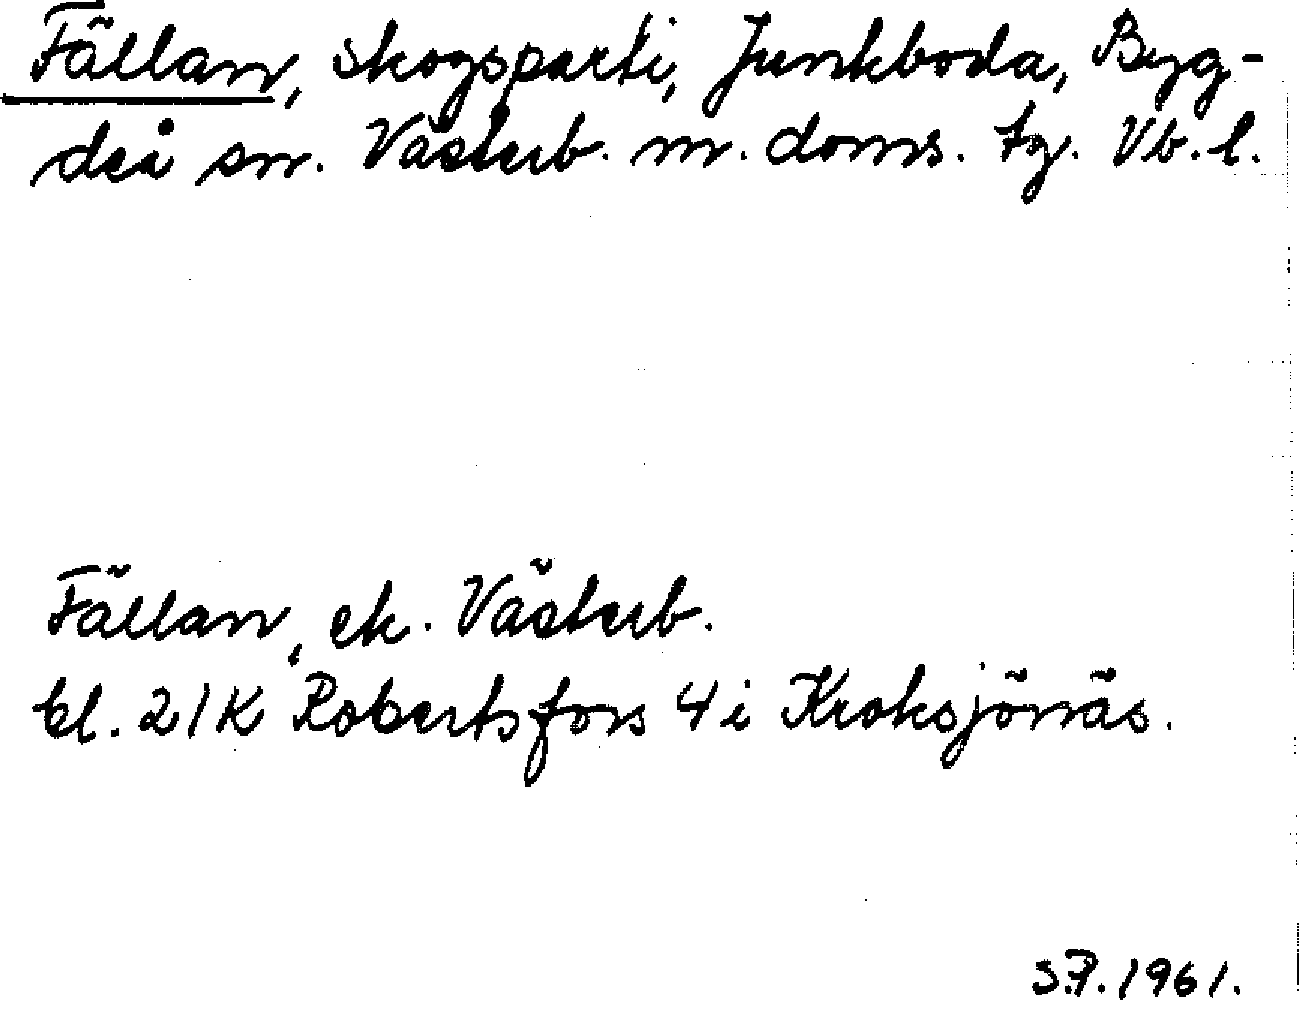 Fällan, skogsparti, Junkboda, Byg-
deå sn. Västerb. m. doms. tg. Vb. l.
Fällan, ek. Västerb.
bl. 21K Robertsfors 4 i Kroksjönäs.
S.P. 1961.